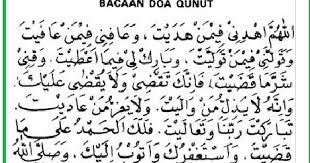 BACAAN DOA QUNUT
اَللّٰهُمَّ اهْدِنِيْ فِيْمَنْ هَدَيْتَ ، وَعَافِنِيْ فِيْمَنْ عَافَيْتَ
وَتَوَلَّنِيْ فِيْمَنْ تَوَلَّيْتَ ، وَبَارِكْ لِيْ فِيْمَا اَعْطَيْتَ ، وَقِنِيْ
شَرَّمَا قَضَيْتَ ، فَاِنَّكَ تَقْضِيْ وَلَا يُقْضٰى عَلَيْكَ
وَاِنَّهُ لَا يَذِلُّ مَنْ وَالَيْتَ ، وَلَا يَعِزُّ مَنْ عَادَيْتَ
تَبَارَكْتَ رَبَّنَا وَتَعَالَيْتَ ، فَلَكَ الْحَمْدُ عَلٰى مَا
قَضَيْتَ ، وَاَسْتَغْفِرُكَ وَاَتُوْبُ اِلَيْكَ ، وَصَلَّى اللهُ